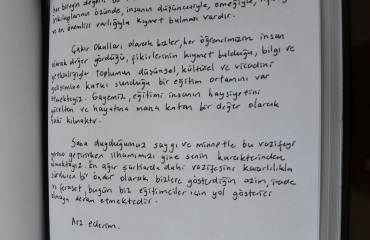 her bireyin değerli
inkılaplarının özünde, insanın düşüncesiyle, emeğiyle,
ve en önemlisi varlığıyla kıymet bulması vardır.
Çakır Okulları olarak bizler, her öğrencimizin insan
olarak değer gördüğü, fikirlerinin kıymet bulduğu, bilgi ve
yetkinliğiyle toplumun düşünsel, kültürel ve vicdani
gelişimine katkı sunduğu bir eğitim ortamını var
etmekteyiz. Gayemiz, eğitimi insanın haysiyetini
yücelten ve hayatına mana katan bir değer olarak
baki kılmaktır.
Sana duyduğumuz saygı ve minnetle bu vazifeyi
yerine getirirken ilhamımızı yine senin karakterinden
almaktayız. En ağır şartlarda dahi vazifesini kararlılıkla
sürdüren bir önder olarak bizlere gösterdiğin azim, irade
ve feraset, bugün biz eğitimciler için yol gösterici
olmaya devam etmektedir.
Arz ederim.